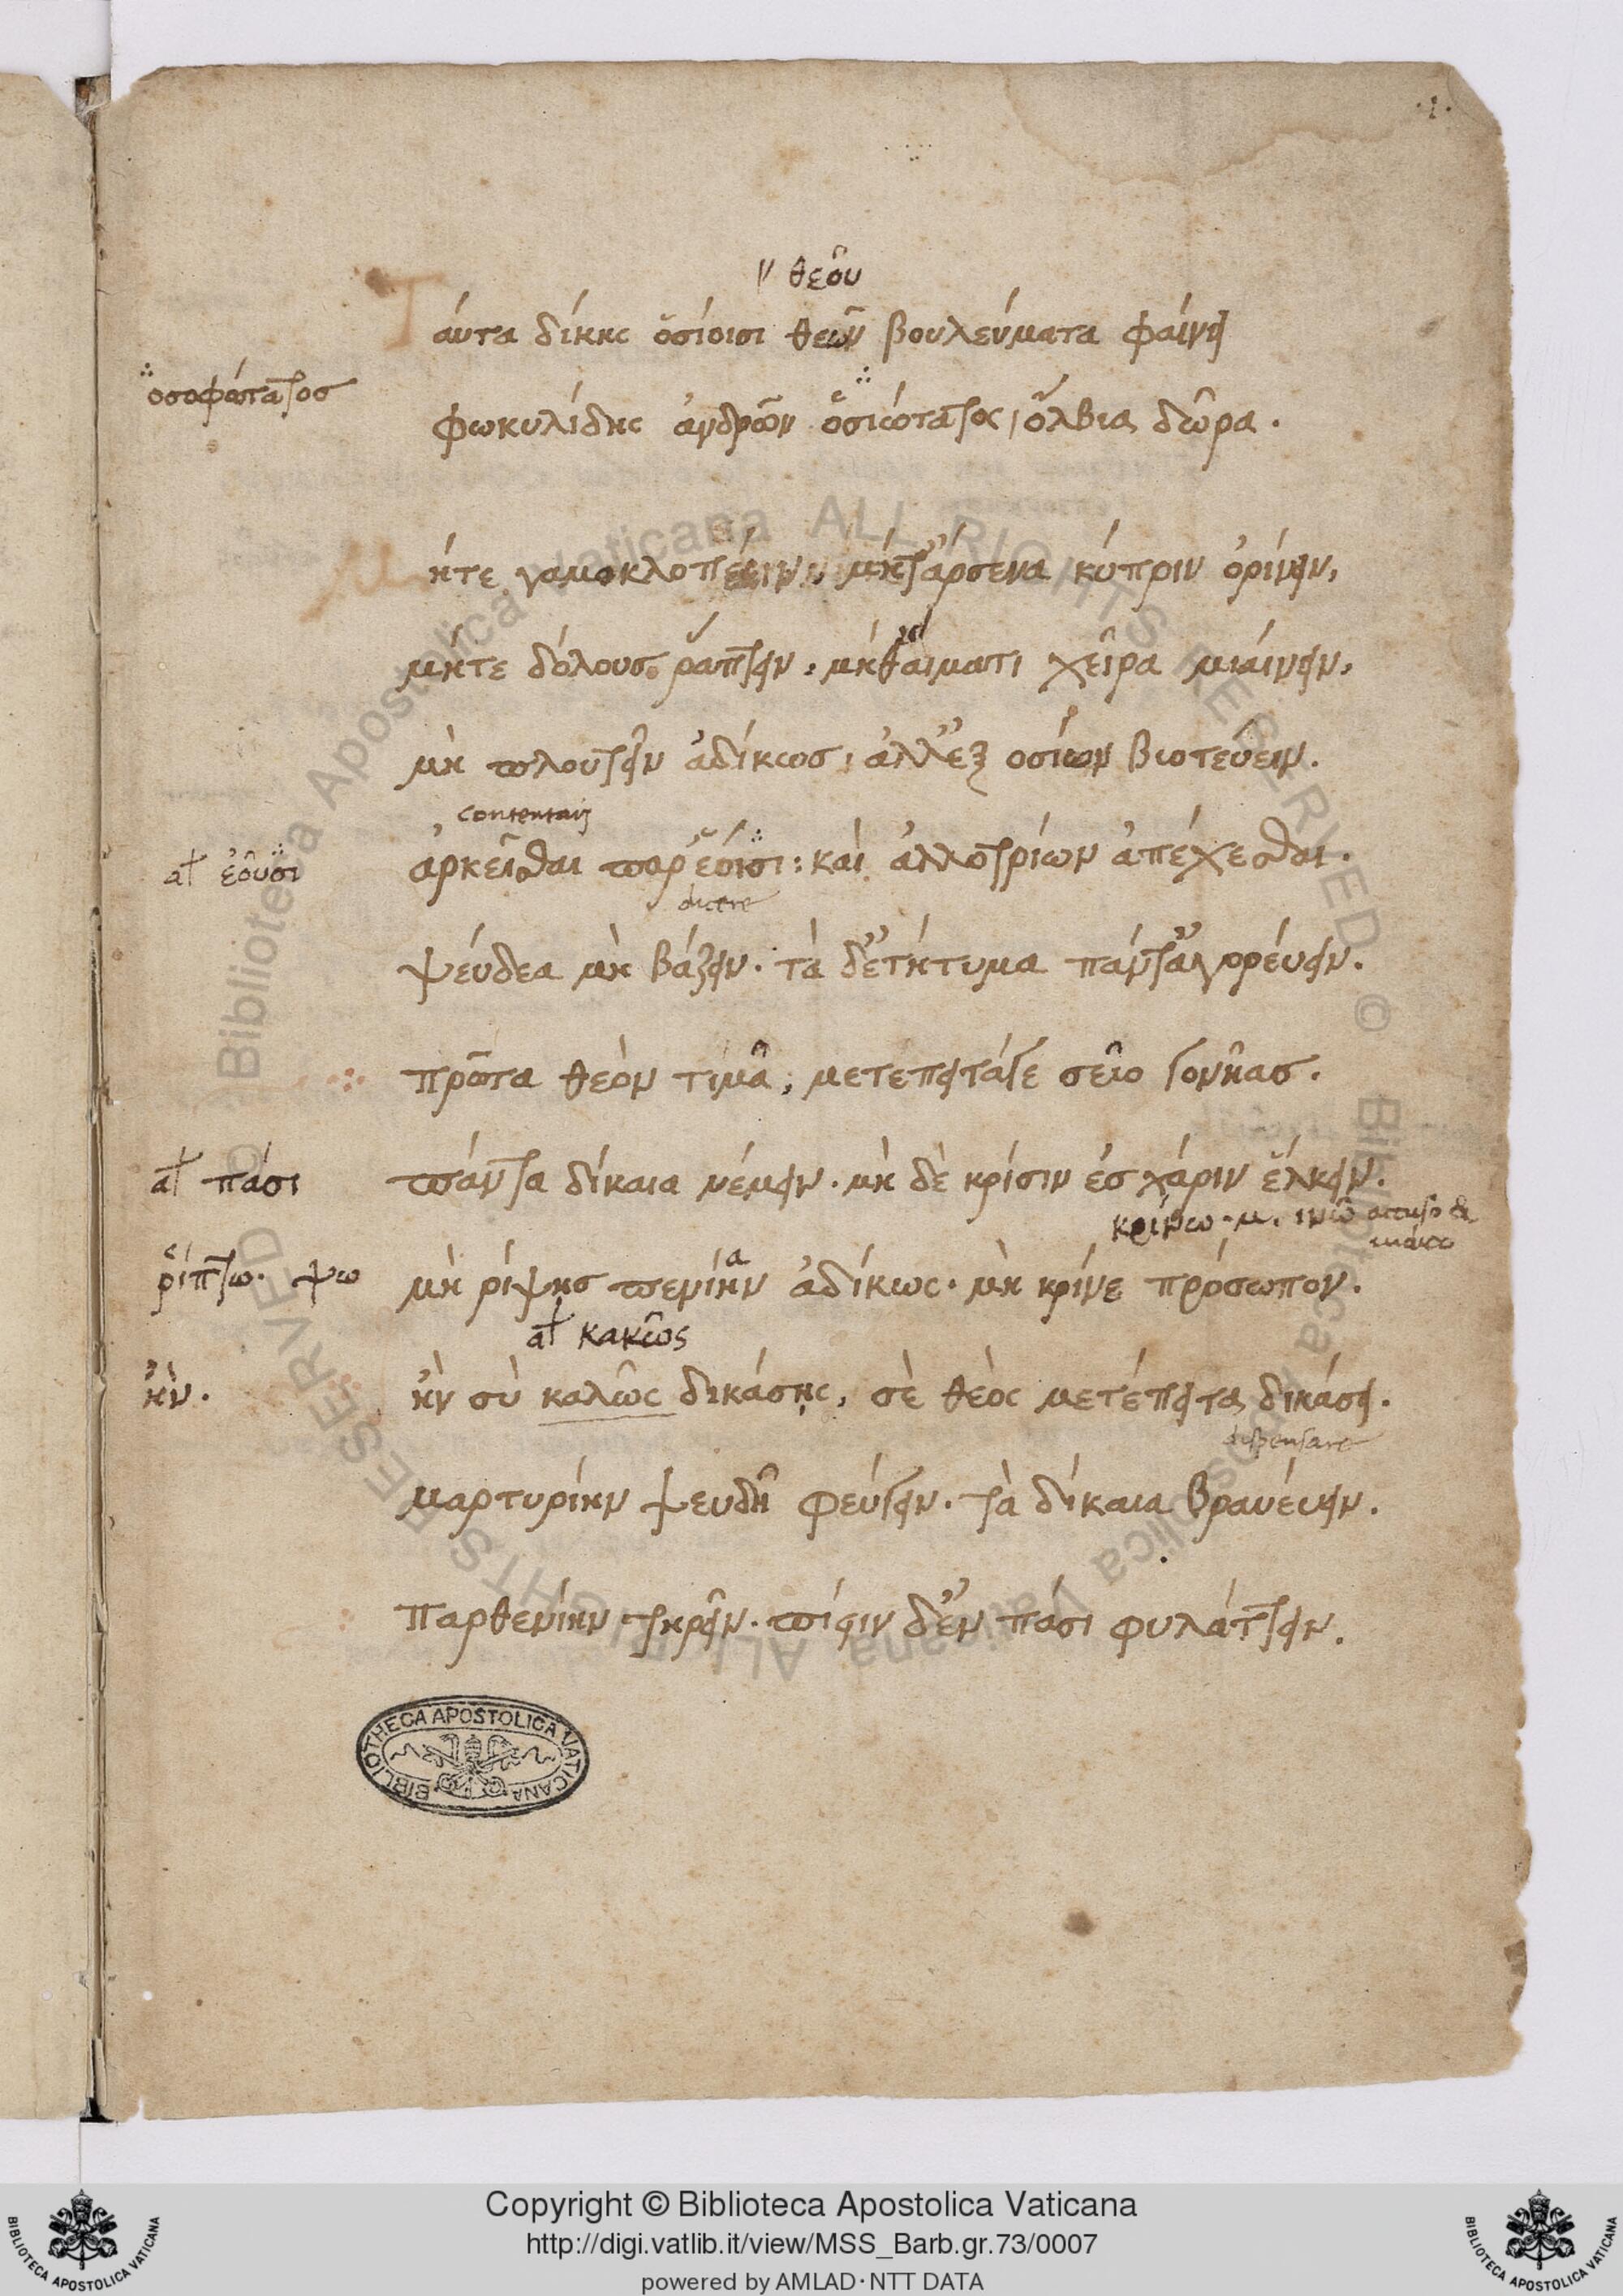 ·1·
θεοῦ
Ταῦτα δίκης ὁσίοισι θεῶν βουλεύματα φαίνει
σοφώτατος
φωκυλίδης ἀνδρῶν ὁσιώτατος, ὄλβια δῶρα.
Μήτε γαμοκλοπέειν, μήτ' ἄρσενα κύπριν ὀρίνειν,
μήτε δόλους ῥάπτειν, μήθ' αἵματι χεῖρα μιαίνειν,
μὴ πλουτεῖν ἀδίκως, ἀλλ' ἐξ οσίων βιοτεύειν.
contentari
ἀρκεῖσθαι παρ' ἑοῖσι: καὶ ἀλλοτρίων ἀπέχεσθαι.
ἐοῦσι
dicere
ψεύδεα μὴ βάζειν. τὰ δ' ἐτήτυμα πάντ' ἀγορεύειν.
πρῶτα θεὸν τιμᾶ, μετέπειτά γε σεῖο γονῆας.
πάντα δίκαια νέμειν. μὴ δὲ κρίσιν ἐς χάριν ἕλκειν.
πᾶσι
κρίνω. μ. ινῶ accuso &
ῥίπτω. ψω
μὴ ρίψῃς πενίην ἀδίκως. μὴ κρίνε πρόσωπον.
α
κακῶς
ἢν.
ἢν σὺ καλῶς δικάσῃς, σὲ θεὸς μετέπειτα δικάσει.
dispensare
μαρτυρίην ψευδῆ φεύγειν. τὰ δίκαια βραυέυειν.
παρθενίην τηρεῖν. πίστιν δ' ἐν πᾶσι φυλάττειν.
BIBLIOTHECA APOSTOLICA VATICANA
© Biblioteca Apostolica Vaticana ALL RIGHTS RESERVED
© Biblioteca Apostolica Vaticana ALL RIGHTS RESERVED
Copyright © Biblioteca Apostolica Vaticana
http://digi.vatlib.it/view/MSS_Barb.gr.73/0007
powered by AMLAD·NTT DATA
BIBLIOTECA APOSTOLICA VATICANA
BIBLIOTECA APOSTOLICA VATICANA